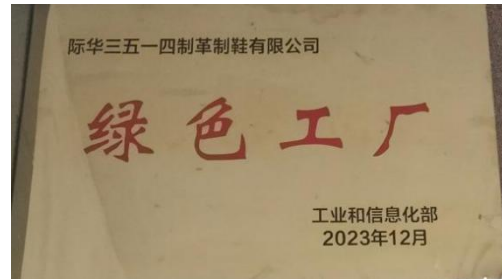 际华三五一四制革制鞋有限公司
绿色工厂
工业和信息化部
2023年12月